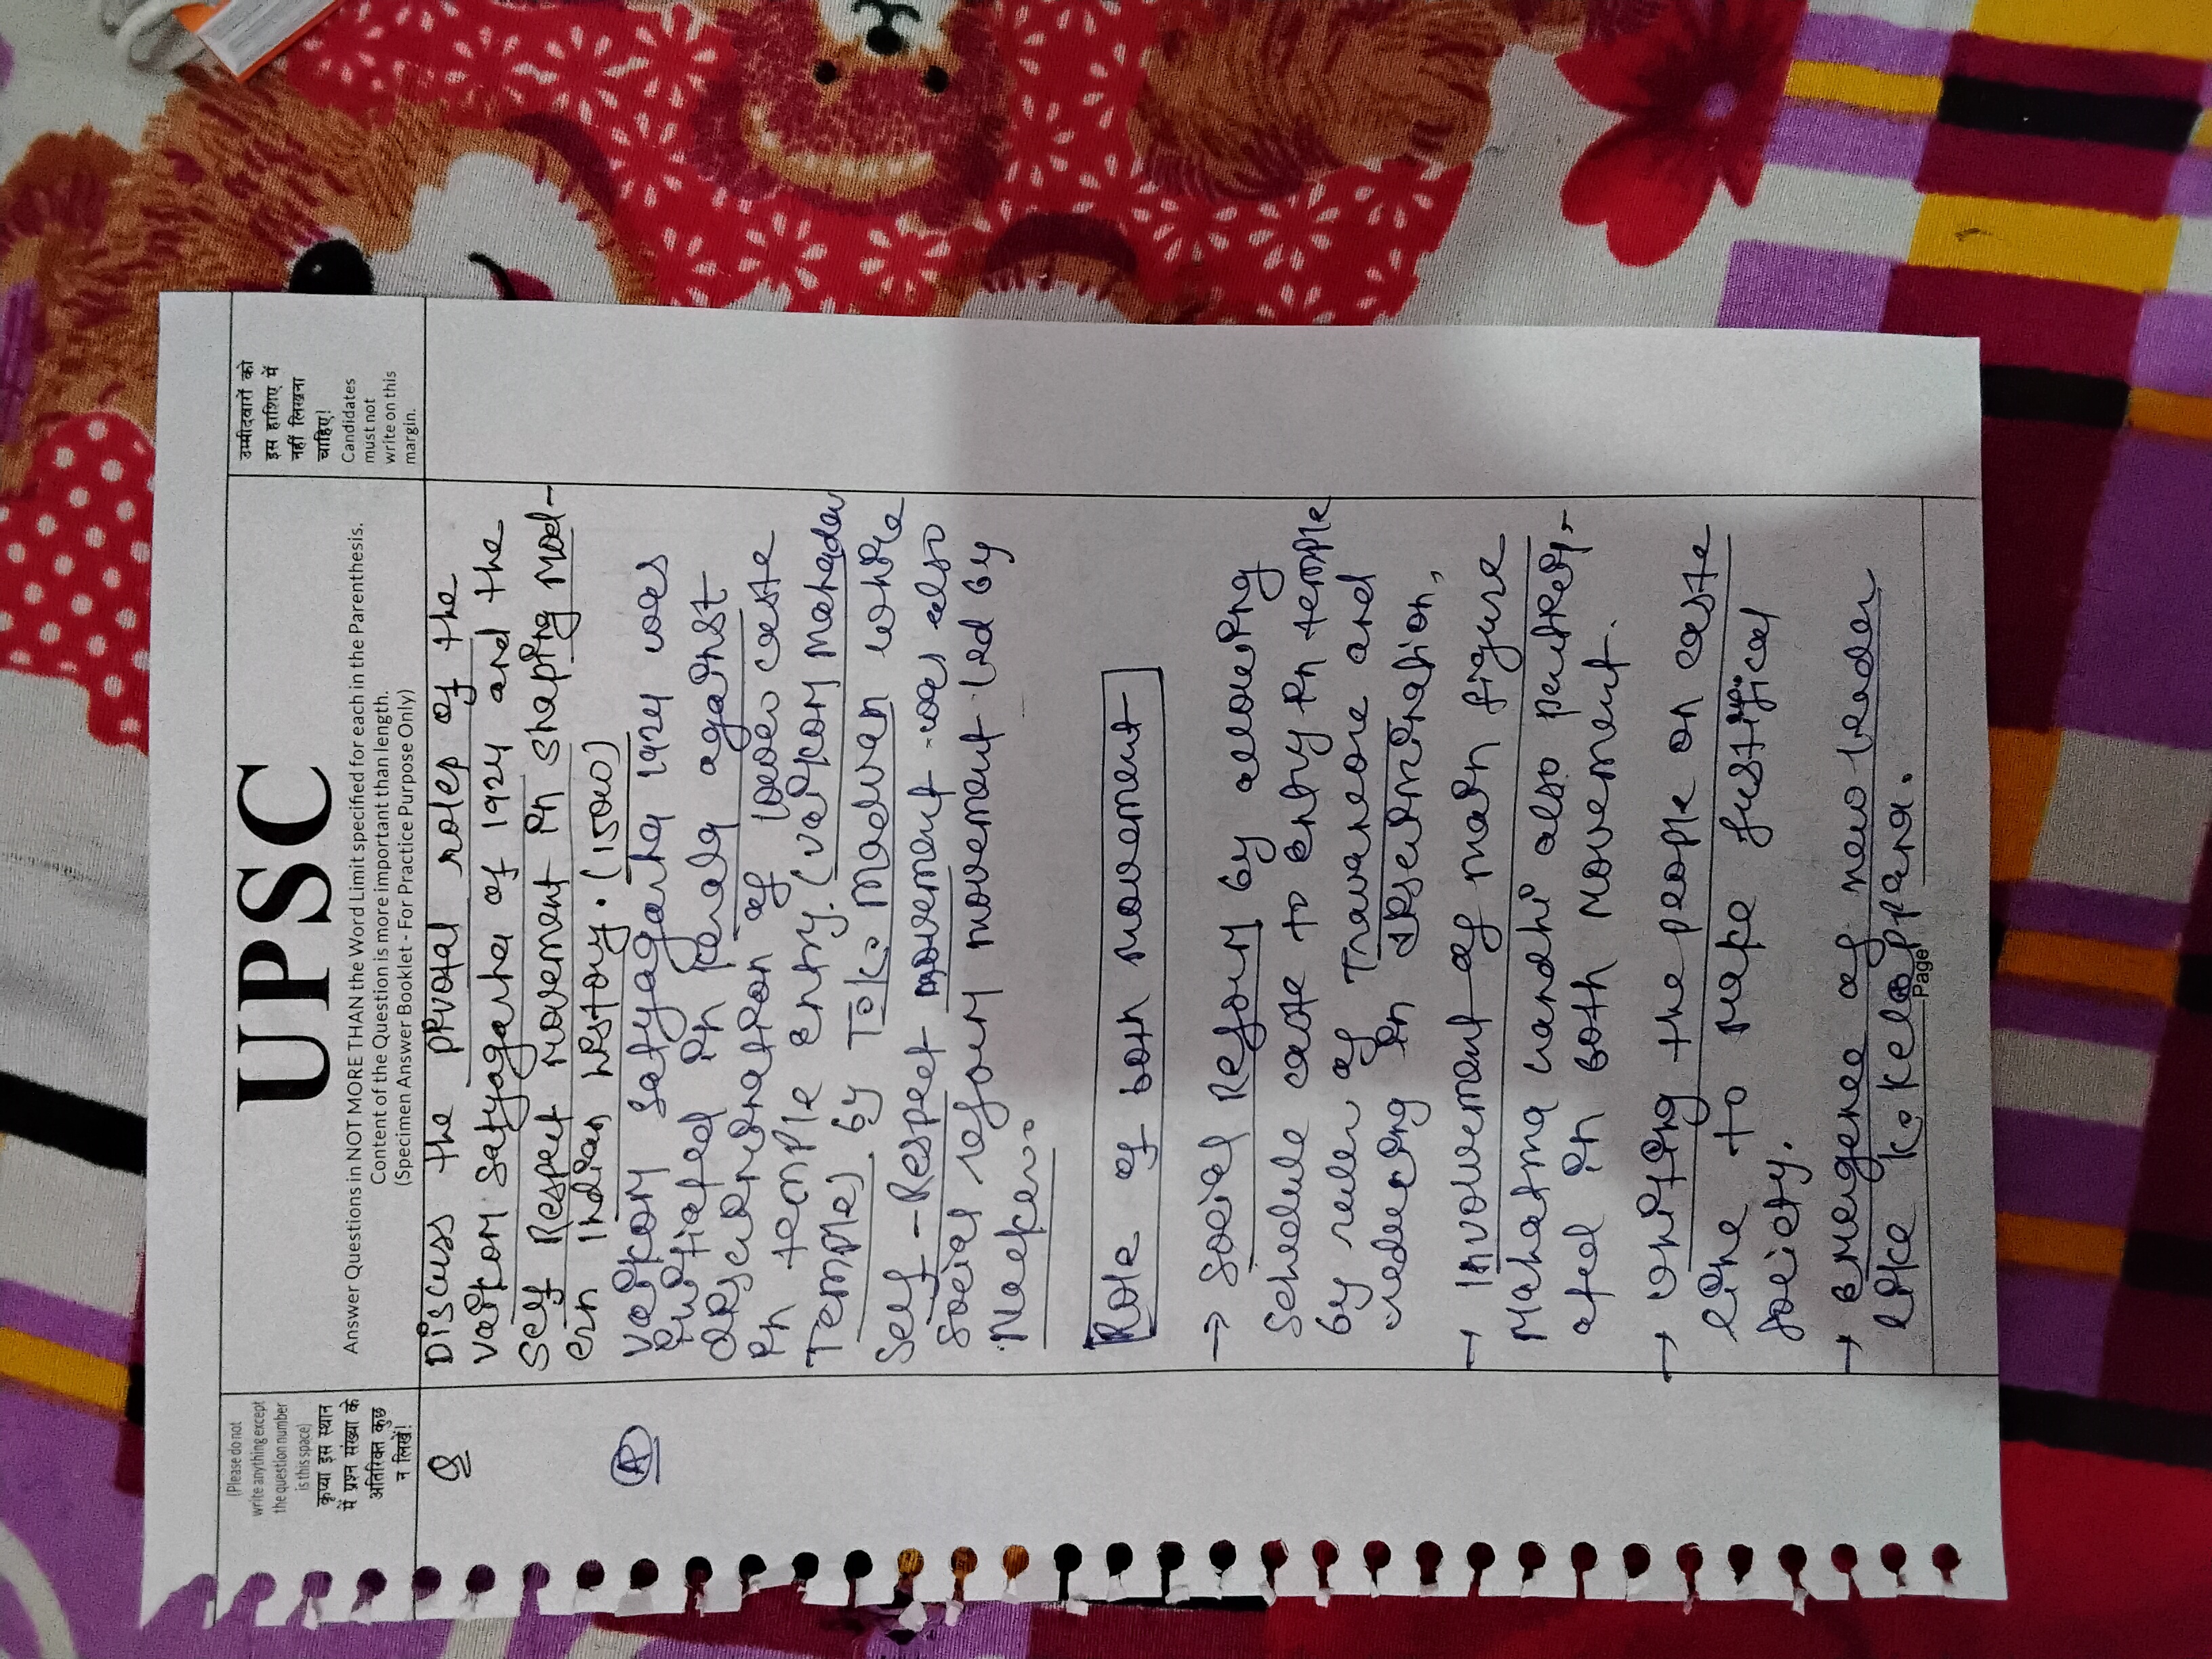 (Please do not
write anything except
the question number
is this space)
कृप्या इस स्थान
में प्रश्न संख्या के
अतिरिक्त कुछ
न लिखें!
UPSC
Answer Questions in NOT MORE THAN the Word Limit specified for each in the Parenthesis.
Content of the Question is more important than length.
(Specimen Answer Booklet - For Practice Purpose Only)
उम्मीदवारों को
इस हाशिए में
नहीं लिखना
चाहिए!
Candidates
must not
write on this
margin.
Q Discuss the pivotal roles of the
vaikom satyagarha of 1924 and the
Self Respect movement in shaping mod-
ern Indian history. (150w)
A vaikom satyagarha 1924 was
initiated in Kerala against
discrimination of lower caste
in temple entry. (vaikom mahadev
Temple) by T.K. Madvan while
Self-Respect movement was also
social reform movement led by
Naeker.
Role of both movement
→ social Reform by allowing
Schedule caste to entry in temple
by ruler of Travancore and
reducing in discrimination,
→ Involvement of main figure
Mahatma Gandhi also
ated in both movement.
→ Uniting the people on caste
line to make
society.
→ emergence of new leader
like K. Kelappana.
Page